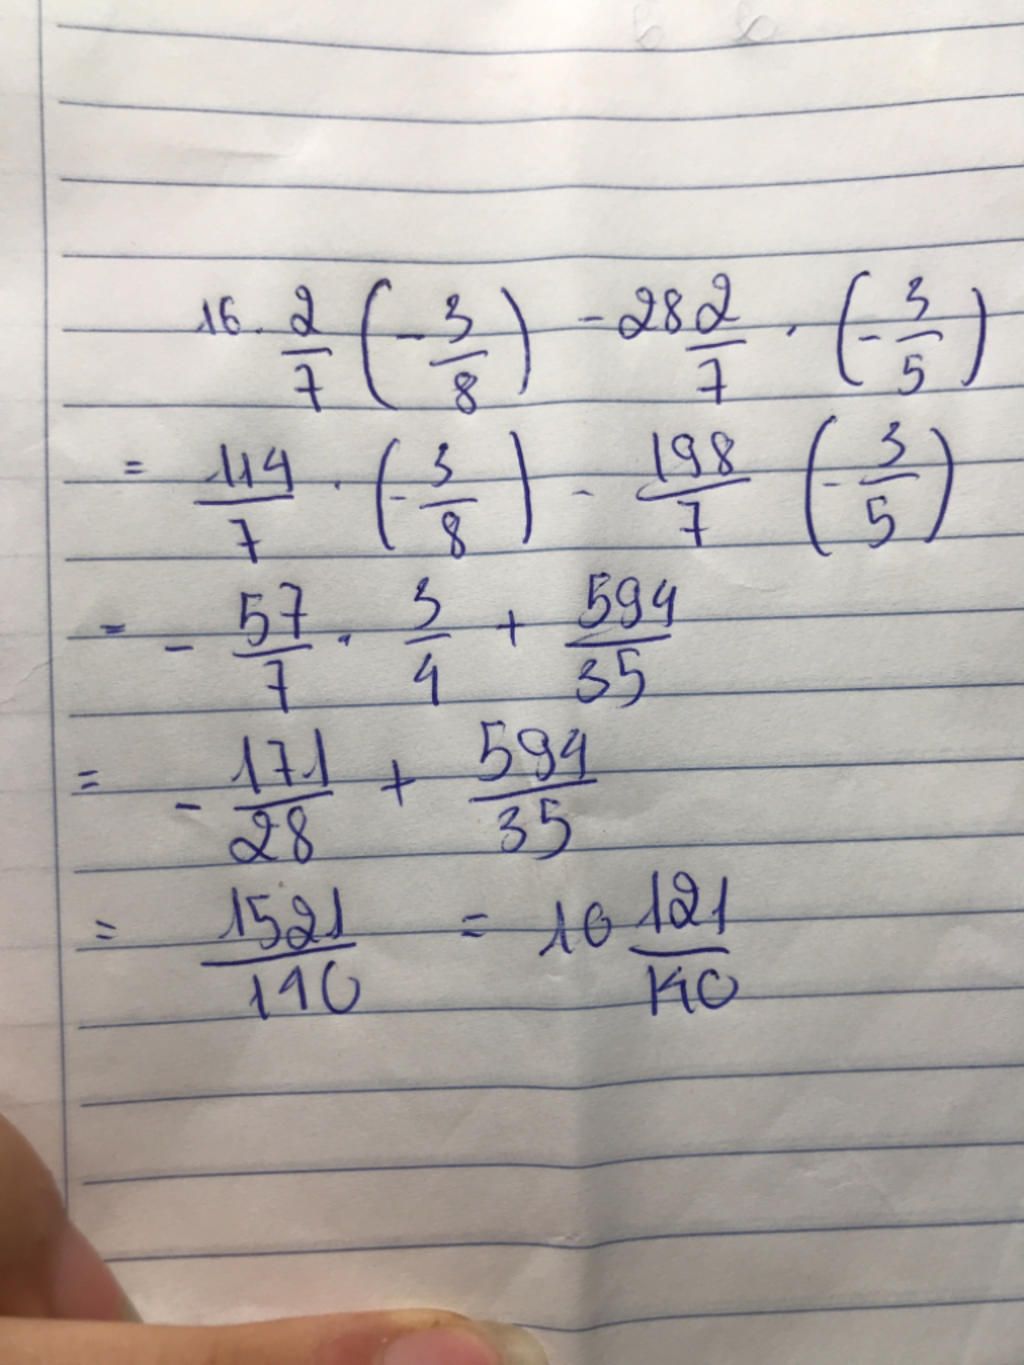 16. 2/7 (-3/8) - 28 2/7 . (-3/5)
= 114/7 . (-3/8) - 198/7 (-3/5)
= - 57/7 . 3/4 + 594/35
= - 171/28 + 594/35
= 1521/140 = 10 121/140